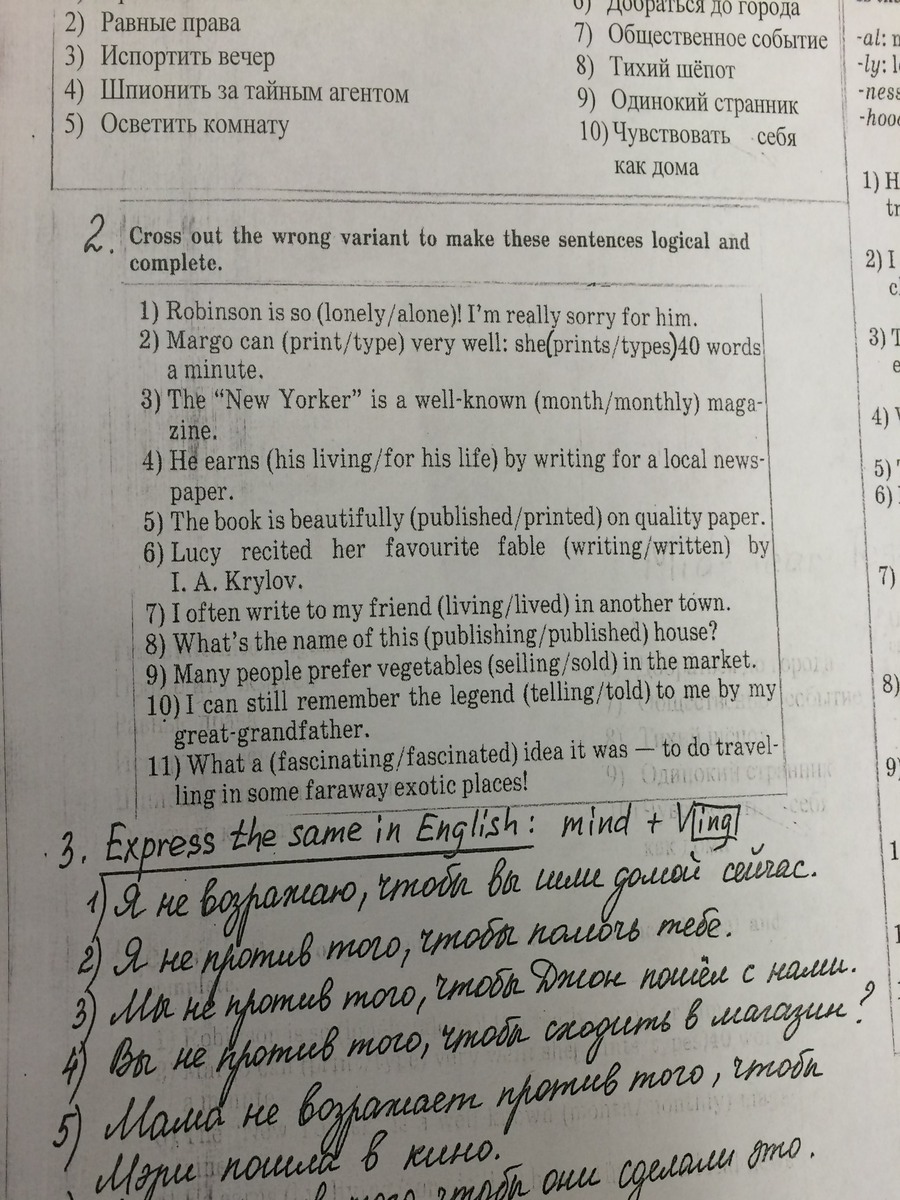 2) Равные права
3) Испортить вечер
4) Шпионить за тайным агентом
5) Осветить комнату
6) Добраться до города
7) Общественное событие
8) Тихий шёпот
9) Одинокий странник
10) Чувствовать себя
как дома
-al:
-ly:
-ness
-hood
1) H
tr
2) I
3) T
4)
5)
6)
7)
8)
9)
2. Cross out the wrong variant to make these sentences logical and
complete.
1) Robinson is so (lonely/alone)! I'm really sorry for him.
2) Margo can (print/type) very well: she (prints/types) 40 words
a minute.
3) The “New Yorker” is a well-known (month/monthly) maga-
zine.
4) He earns (his living/for his life) by writing for a local news-
paper.
5) The book is beautifully (published/printed) on quality paper.
6) Lucy recited her favourite fable (writing/written) by
I. A. Krylov.
7) I often write to my friend (living/lived) in another town.
8) What's the name of this (publishing/published) house?
9) Many people prefer vegetables (selling/sold) in the market.
10) I can still remember the legend (telling/told) to me by my
great-grandfather.
11) What a (fascinating/fascinated) idea it was — to do travel-
ling in some faraway exotic places!
3. Express the same in English: mind + Ving
1) Я не возражаю, чтобы вы шли домой сейчас.
2) Я не против того, чтобы помочь тебе.
3) Мы не против того, чтобы Джон пошёл с нами.
4) Вы не против того, чтобы сходить в магазин?
5) Мама не возражает против того, чтобы
Мэри пошла в кино.
чтобы они сделали это.